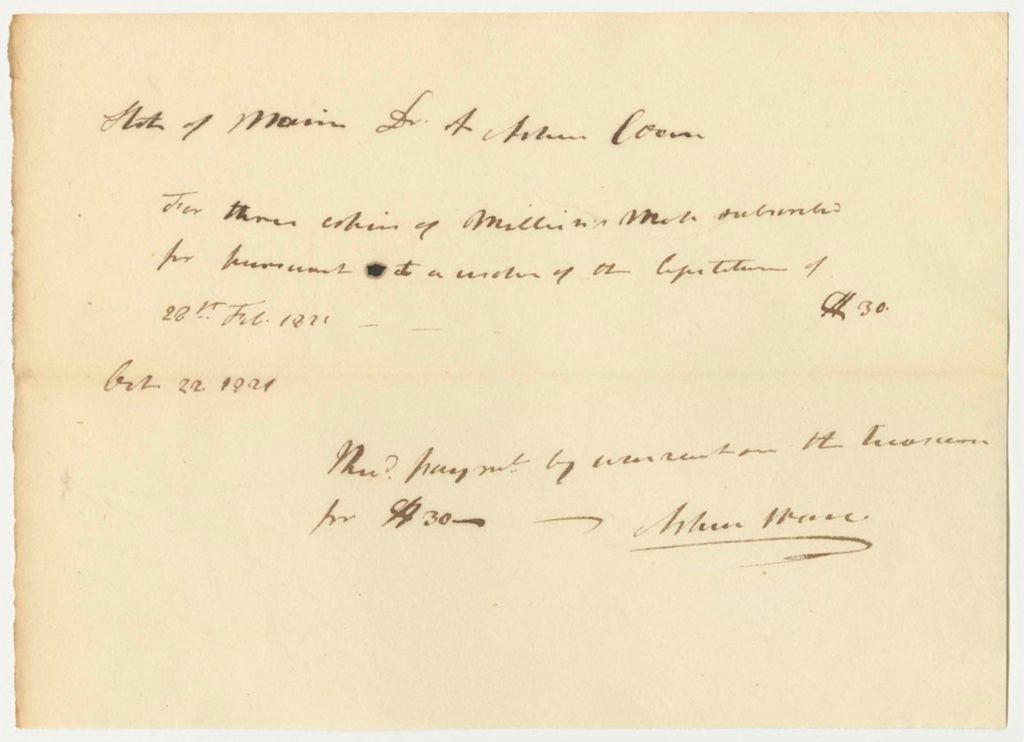 State of Maine Dr. to Ashur Ware
For three copies of Million's Map subscribed
for pursuant to a resolve of the Legislature of
28th. Feb. 1821 — — — $30.
Oct. 22. 1821
Recd. paymt. by warrant on the treasurer
for $30— — Ashur Ware